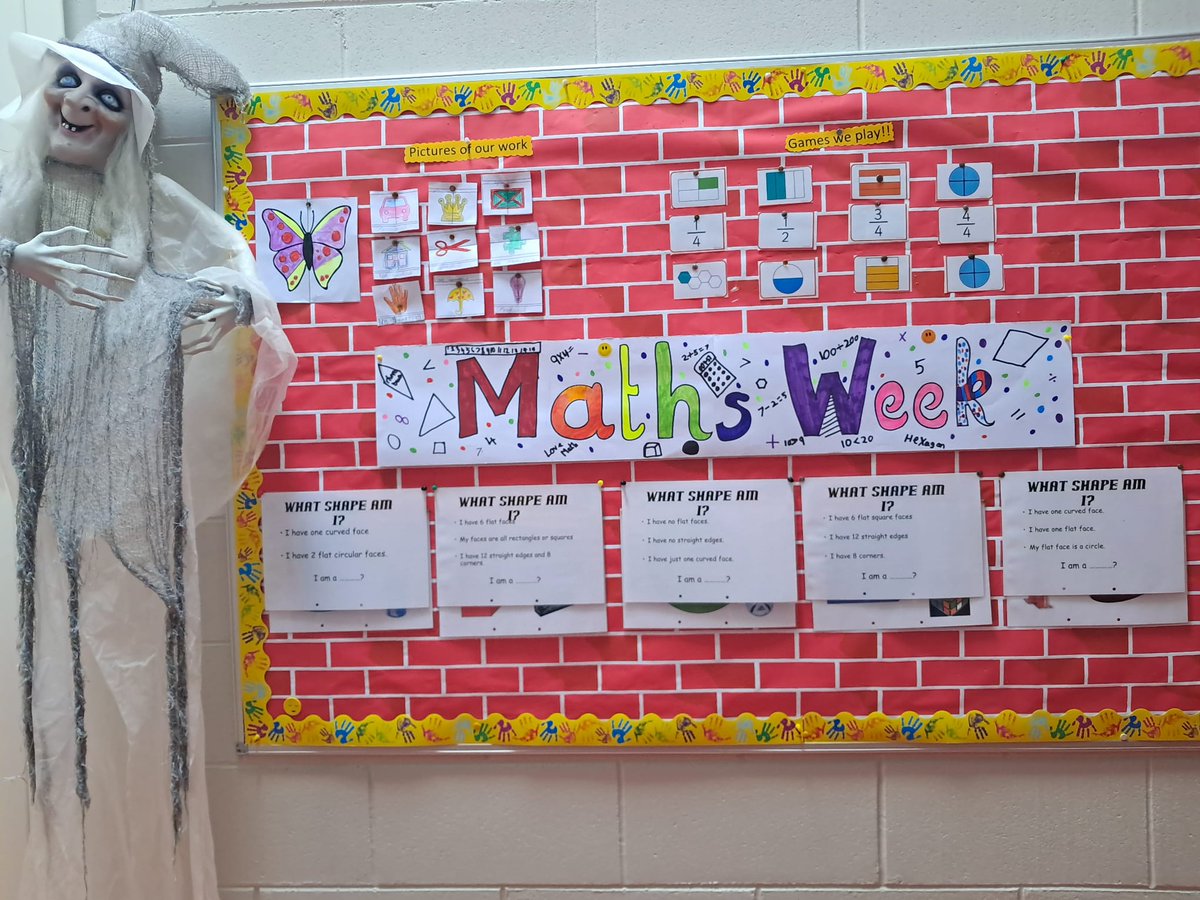 Pictures of our work
Games we play!!
1
4
1
2
3
4
4
4
Maths Week
9x4=
2+5=7
100÷200
5
7-2=5
4
7
Love
Maths
10<20
Hexagon
WHAT SHAPE AM
I?
• I have one curved face.
• I have 2 flat circular faces.
I am a ..........?
WHAT SHAPE AM
I?
• I have 6 flat faces
• My faces are all rectangles or squares
• I have 12 straight edges and 8
corners.
I am a ..........?
WHAT SHAPE AM
I?
• I have no flat faces.
• I have no straight edges.
• I have just one curved face.
I am a ..........?
WHAT SHAPE AM
I?
• I have 6 flat square faces
• I have 12 straight edges
• I have 8 corners.
I am a ..........?
WHAT SHAPE AM
I?
• I have one curved face.
• I have one flat face.
• My flat face is a circle.
I am a ..........?